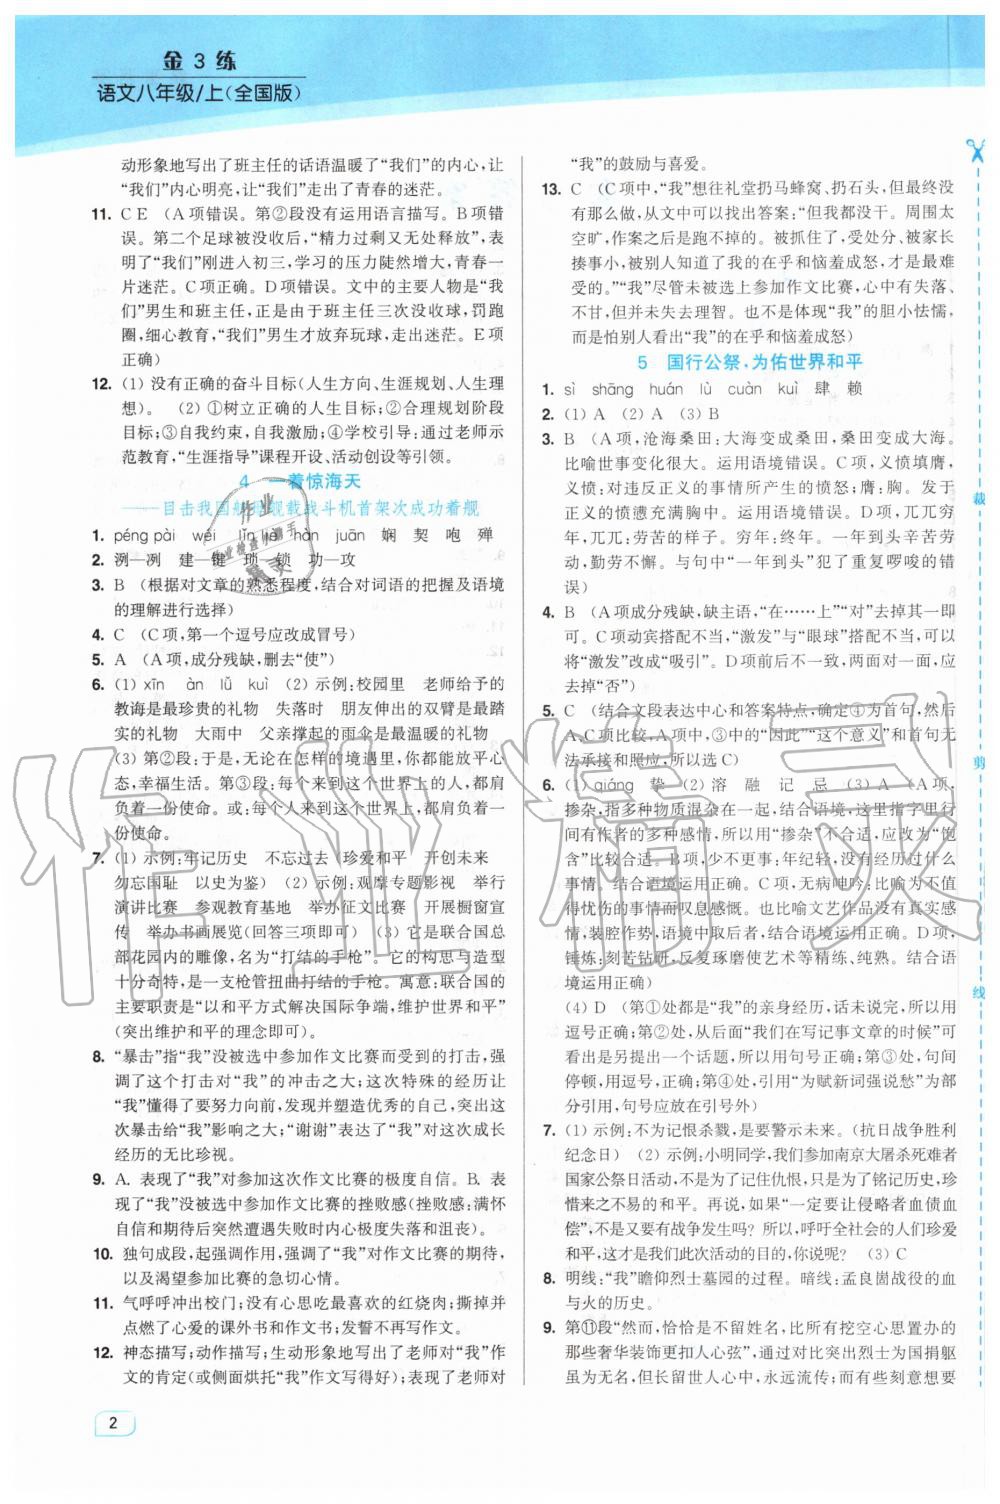 金3练
语文八年级/上(全国版)
动形象地写出了班主任的话语温暖了“我们”的内心,让
“我们”内心明亮,让“我们”走出了青春的迷茫。
11. C E (A项错误。第②段没有运用语言描写。B项错
误。第二个足球被没收后,“精力过剩又无处释放”,表
明了“我们”刚进入初三,学习的压力陡然增大,青春一
片迷茫。C项正确。D项错误。文中的主要人物是“我
们”男生和班主任,正是由于班主任三次没收球,罚跑
圈,细心教育,“我们”男生才放弃玩球,走出迷茫。E项
正确)
12. (1) 没有正确的奋斗目标(人生方向、生涯规划、人生理
想)。 (2) ①树立正确的人生目标;②合理规划阶段
目标;③自我约束,自我激励;④学校引导:通过老师示
范教育,“生涯指导”课程开设、活动创设等引领。
4 一着惊海天
——目击我国航母舰载战斗机首架次成功着舰
1. péng pài wéi lǐn liè hàn juān 娴 契 咆 殚
2. 洌—冽 建—键 琐—锁 功—攻
3. B (根据对文章的熟悉程度,结合对词语的把握及语境
的理解进行选择)
4. C (C项,第一个逗号应改成冒号)
5. A (A项,成分残缺,删去“使”)
6. (1) xīn àn lǚ kuì (2) 示例:校园里 老师给予的
教诲是最珍贵的礼物 失落时 朋友伸出的双臂是最踏
实的礼物 大雨中 父亲撑起的雨伞是最温暖的礼物
(3) 第②段:于是,无论在怎样的境遇里,你都能放平心
态,幸福生活。第③段:每个来到这个世界上的人,都肩
负着一份使命。或:每个来到这个世界上,都肩负着一
份使命。
7. (1) 示例:牢记历史 不忘过去(珍爱和平 开创未来
勿忘国耻 以史为鉴) (2) 示例:观摩专题影视 举行
演讲比赛 参观教育基地 举办征文比赛 开展橱窗宣
传 举办书画展览(回答三项即可) (3) 它是联合国总
部花园内的雕像,名为“打结的手枪”。它的构思与造型
十分奇特,是一支枪管扭曲打结的手枪。寓意:联合国的
主要职责是“以和平方式解决国际争端,维护世界和平”
(突出维护和平的理念即可)。
8. “暴击”指“我”没被选中参加作文比赛而受到的打击,强
调了这个打击对“我”的冲击之大;这次特殊的经历让
“我”懂得了要努力向前,发现并塑造优秀的自己,突出这
次暴击给“我”影响之大;“谢谢”表达了“我”对这次成长
经历的无比珍视。
9. A. 表现了“我”对参加这次作文比赛的极度自信。B. 表
现了“我”没被选中参加作文比赛的挫败感(挫败感:满
自信和期待后突然遭遇失败时内心极度失落和沮丧)。
10. 独句成段,起强调作用,强调了“我”对作文比赛的期待,
以及渴望参加比赛的急切心情。
11. 气呼呼冲出校门;没有心思吃最喜欢的红烧肉;撕掉并
点燃了心爱的课外书和作文书;发誓不再写作文。
12. 神态描写;动作描写;生动形象地写出了老师对“我”作
文的肯定(或侧面烘托“我”作文写得好);表现了老师对
“我”的鼓励与喜爱。
13. C (C项中,“我”想往礼堂扔马蜂窝、扔石头,但最终没
有那么做,从文中可以找出答案:“但我都没干。周围太
空旷,作案之后是跑不掉的。被抓住了,受处分、被家长
揍事小,被别人看出了我的在乎和恼羞成怒,才是最难
受的。”“我”尽管未被选上参加作文比赛,心中有失落、
不甘,但并未失去理智。也不是体现“我”的胆小怯懦,
而是怕别人看出“我”的在乎和恼羞成怒)
5 国行公祭,为佑世界和平
1. sì shāng huán lù cuàn kuì 肆 赖
2. (1) A (2) A (3) B
3. B (A项,沧海桑田:大海变成桑田,桑田变成大海。
比喻世事变化很大。运用语境错误。C项,义愤填膺,
义愤:对违反正义的事情所产生的愤怒;膺:胸。发于
正义的愤懑充满胸中。运用语境错误。D项,兀兀穷
年,兀兀:劳苦的样子。穷年:终年。一年到头辛苦劳
动,勤劳不倦。与句中“一年到头”犯了重复啰唆的错
误)
4. B (A项成分残缺,缺主语,“在……上”“对”去掉其一即
可。C项动宾搭配不当,“激发”与“眼球”搭配不当,可
将“激发”改成“吸引”。D项前后不一致,两面对一面,
应去掉“否”)
5. C (结合文段表达中心和答案特点,确定①为首句,然后
A、C项比较,A项中,③中的“因此”“这”和首句无
法承接和照应,所以选C)
6. (1) qiáng 挚 (2) 溶 融 记 忌 (3) A (A项,
掺杂,指多种物质混杂在一起,结合语境,这里指字里行
间有作者的多种感情,所以用“掺杂”不合适,应改为“饱
含”比较合适。B项,少不更事:年纪轻,没有经历过什么
事情。结合语境运用正确。C项,无病呻吟:比喻为不值得
忧伤的事情而叹息感慨。也比喻文艺作品没有真实感
情,装腔作势,语境中取后者,结合语境运用正确。D项,
锤炼:刻苦钻研,反复琢磨使艺术等精练、纯熟。结合语
境运用正确)
(4) D (第①处都是“我”的亲身经历,话未说完,所以用
逗号正确;第②处,从后面“我们在写记事文章的时候”可
看出是另提出一个话题,所以用句号正确;第③处,句间
停顿,用逗号,正确;第④处,引用“为赋新词强说愁”为部
分引用,句号应放在引号外)
7. (1) 示例:不为记恨杀戮,是要警示未来。(抗日战争胜利
纪念日) (2) 示例:小明同学,我们参加南京大屠杀死难者
国家公祭日活动,不是为了记住仇恨,只是为了铭记历史,珍
惜来之不易的和平。再说,如果“一定要让侵略者血债血
偿”,不是又要有战争发生吗?所以,呼吁全社会的人们珍爱
和平,这才是我们此次活动的目的,你说呢? (3) C
8. 明线:“我”瞻仰烈士墓园的过程。暗线:孟良崮战役的血
与火的历史。
9. 第⑪段“然而,恰恰是不留姓名,比所有挖空心思置办的
那些奢华装饰更扣人心弦”,比如这些烈士为国捐躯,虽
无名,但长留世人心中,永远流传;而有些刻意想要
裁
剪
线
2
作业精灵